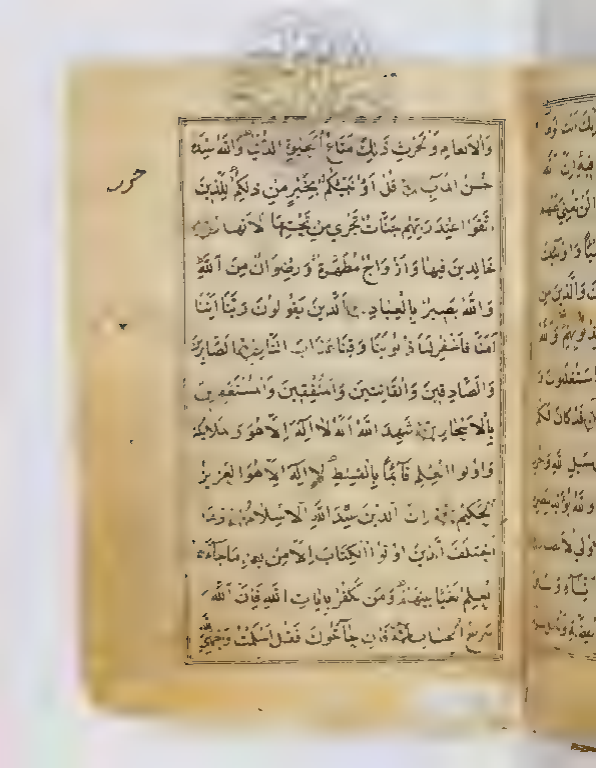 فيه ان الله
لن تغني عنهم
والذين من
ستغلبون و
قد كان لكم
والانعام والحرث ذلك متاع الحيوة الدنيا والله عنده
حسن المآب قل اؤنبئكم بخير من ذلكم للذين
حزب
اتقوا عند ربهم جنات تجري من تحتها الانهار
خالدين فيها وازواج مطهرة ورضوان من الله
والله بصير بالعباد الذين يقولون ربنا اننا
آمنا فاغفر لنا ذنوبنا وقنا عذاب النار الصابرين
والصادقين والقانتين والمنفقين والمستغفرين
بالاسحار شهد الله انه لا اله الا هو والملائكة
واولوا العلم قآئما بالقسط لا اله الا هو العزيز
الحكيم ان الدين عند الله الاسلام وما
اختلف الذين اوتوا الكتاب الا من بعد ما جآءهم
العلم بغيا بينهم ومن يكفر بايات الله فان الله
سريع الحساب فان حآجوك فقل اسلمت وجهي